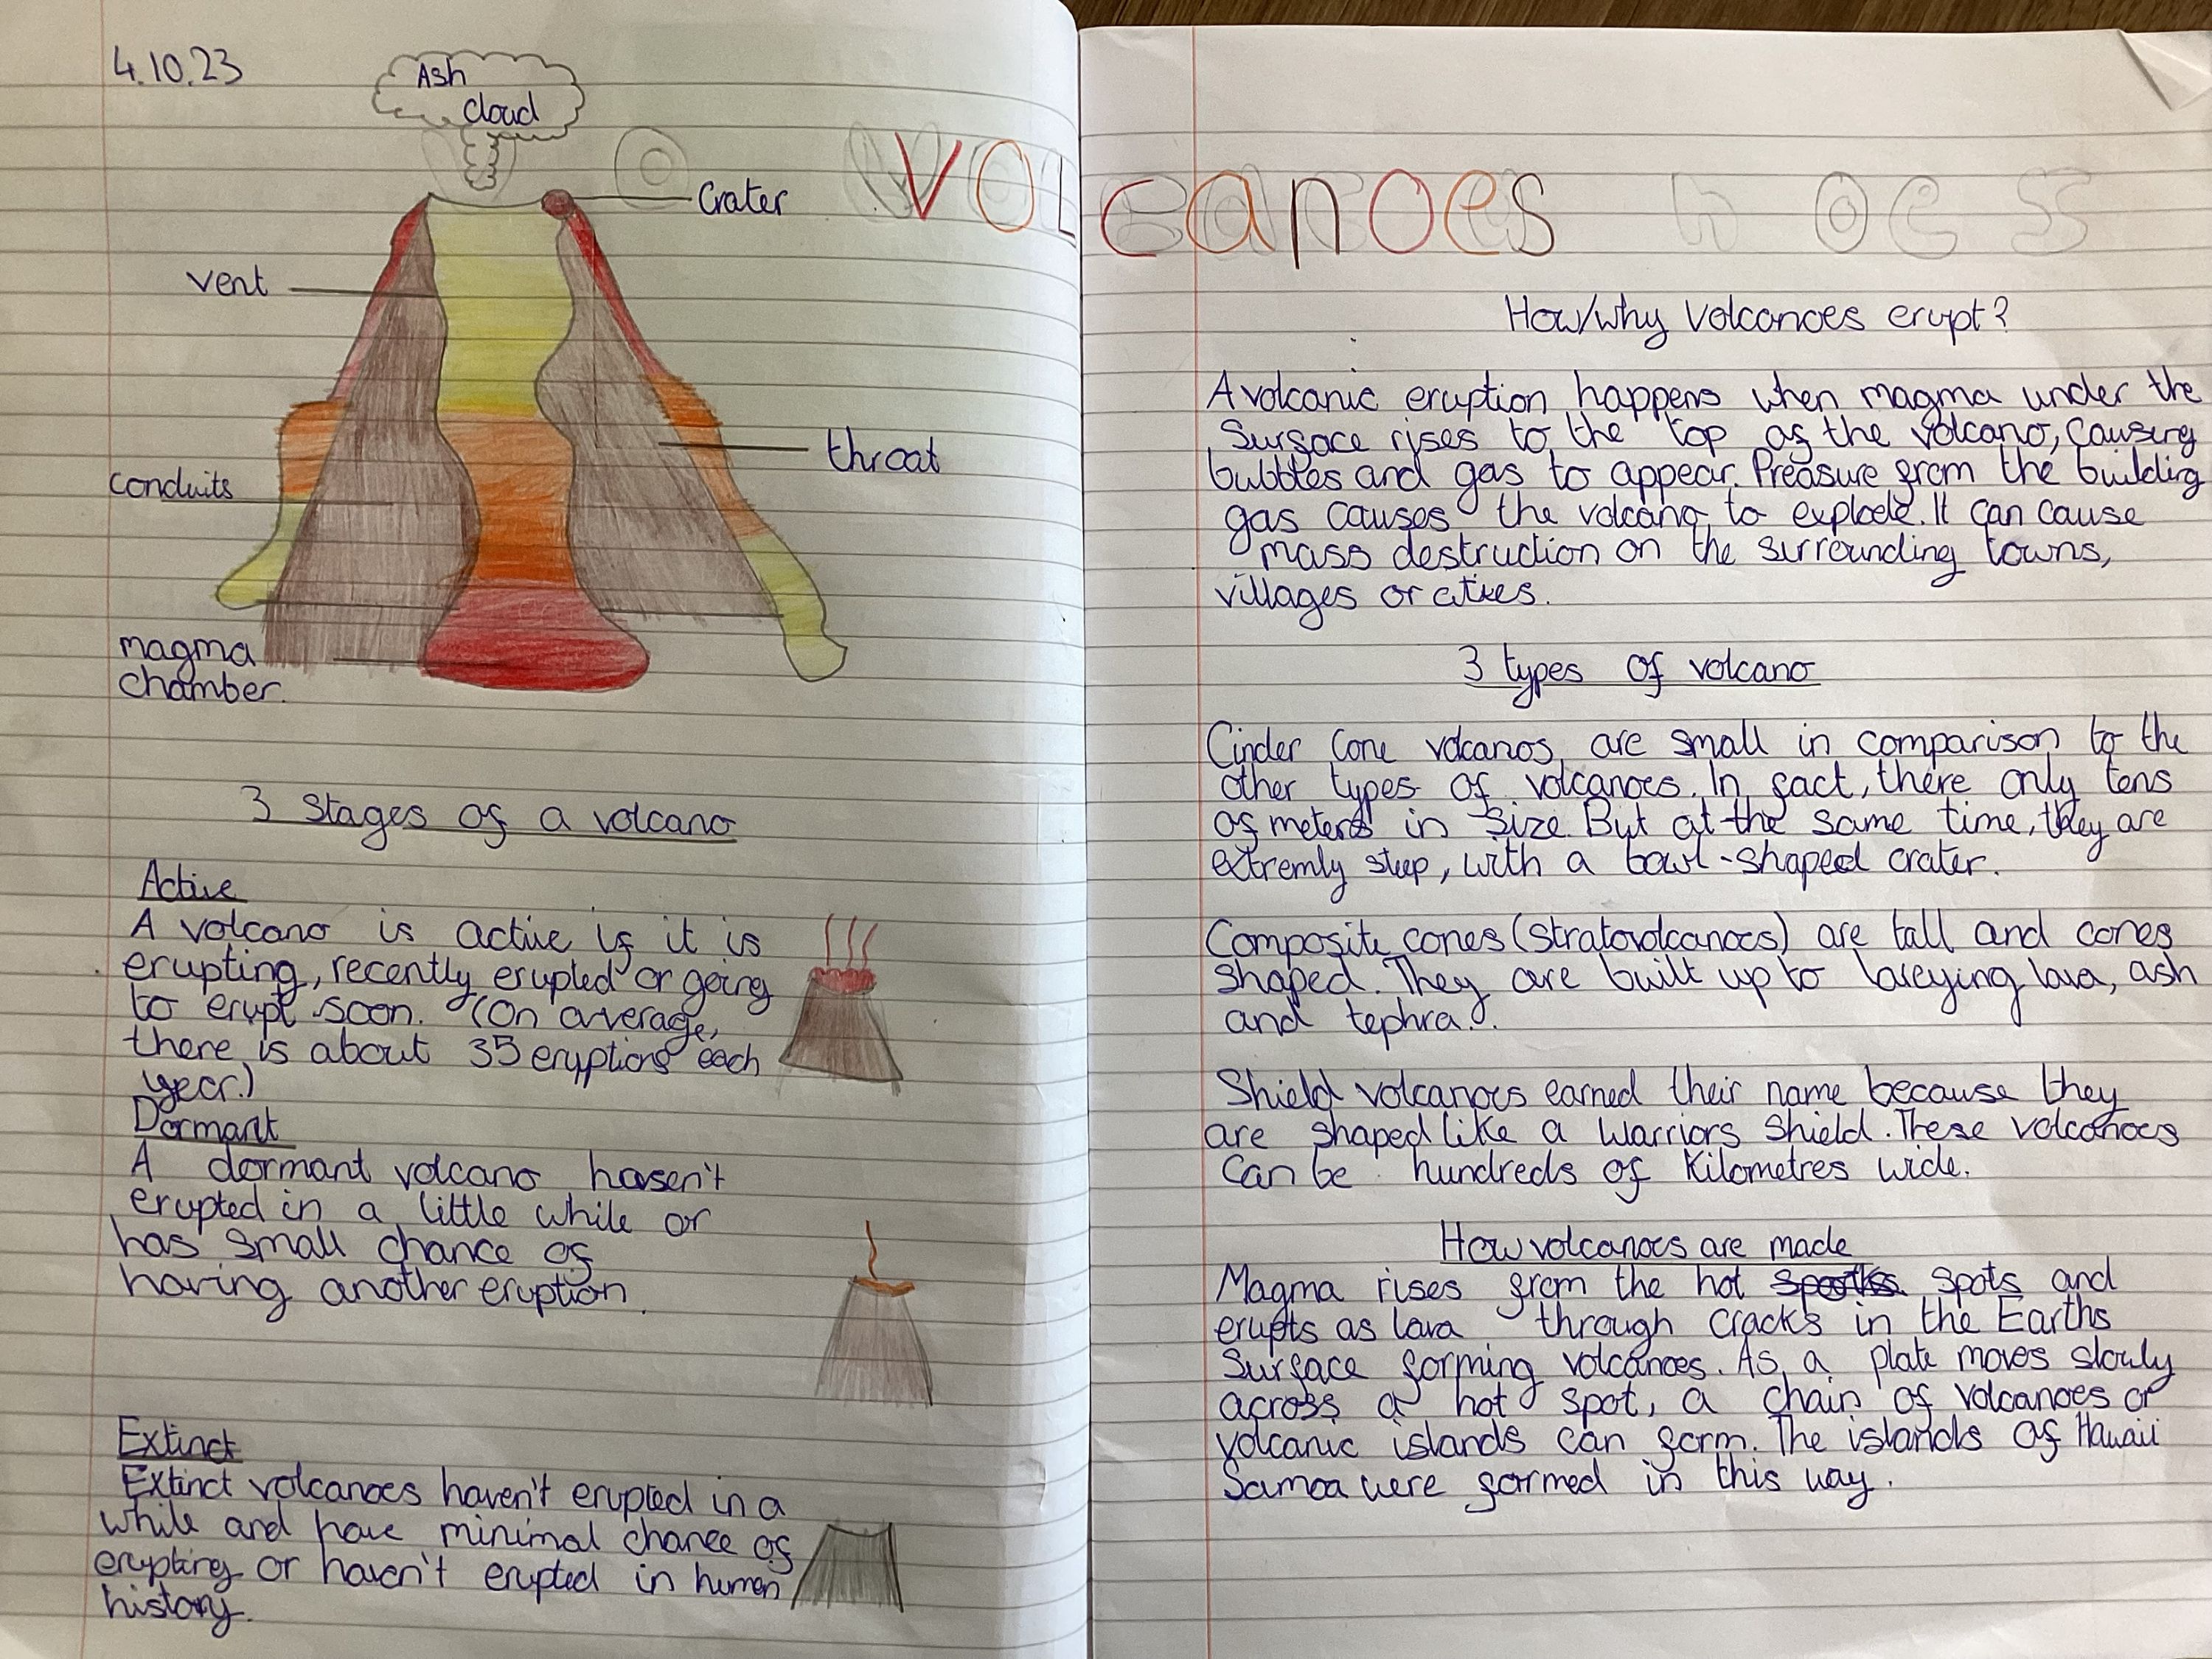 4.10.23
Ash
Cloud
Crater
vent
throat
conduits
magma
chamber.
3 Stages of a volcano
Active
A volcano is active if it is
erupting, recently erupted or going
to erupt soon. (On average,
there is about 35 eruptions each
year.)
Dormant
A dormant volcano hasen't
erupted in a little while or
has small chance of
having another eruption.
Extinct
Extinct volcanoes haven't erupted in a
while and have minimal chance of
erupting or haven't erupted in human
history.
Volcanoes
How/why Volcanoes erupt?
A volcanic eruption happens when magma under the
Surface rises to the top of the volcano, causing
bubbles and gas to appear. Preasure from the building
gas causes the volcano to explode. It can cause
mass destruction on the surrounding towns,
villages or cities.
3 types of volcano
Cinder Cone volcanos are small in comparison to the
other types of volcanoes. In fact, there only tens
of meters in size. But at the same time, they are
extremly steep, with a bowl-shaped crater.
Composite cones (stratovolcanoes) are tall and cones
shaped. They are built up to lareying lava, ash
and tephra.
Shield volcanoes earned their name because they
are shaped like a warriors shield. These volcanoes
can be hundreds of kilometres wide.
How volcanoes are made
Magma rises from the hot spots and
erupts as lava through cracks in the Earths
Surface forming volcanoes. As a plate moves slowly
across a hot spot, a chain of volcanoes or
volcanic islands can form. The islands of Hawaii
Samoa were formed in this way.